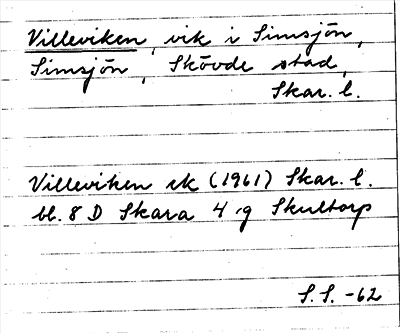 Villeviken, vik i Simsjön,
Simsjön, Skövde stad,
Skar. l.
Villeviken ek (1961) Skar. l.
bl. 8 D Skara 4 g Skultorp
S.S. -62